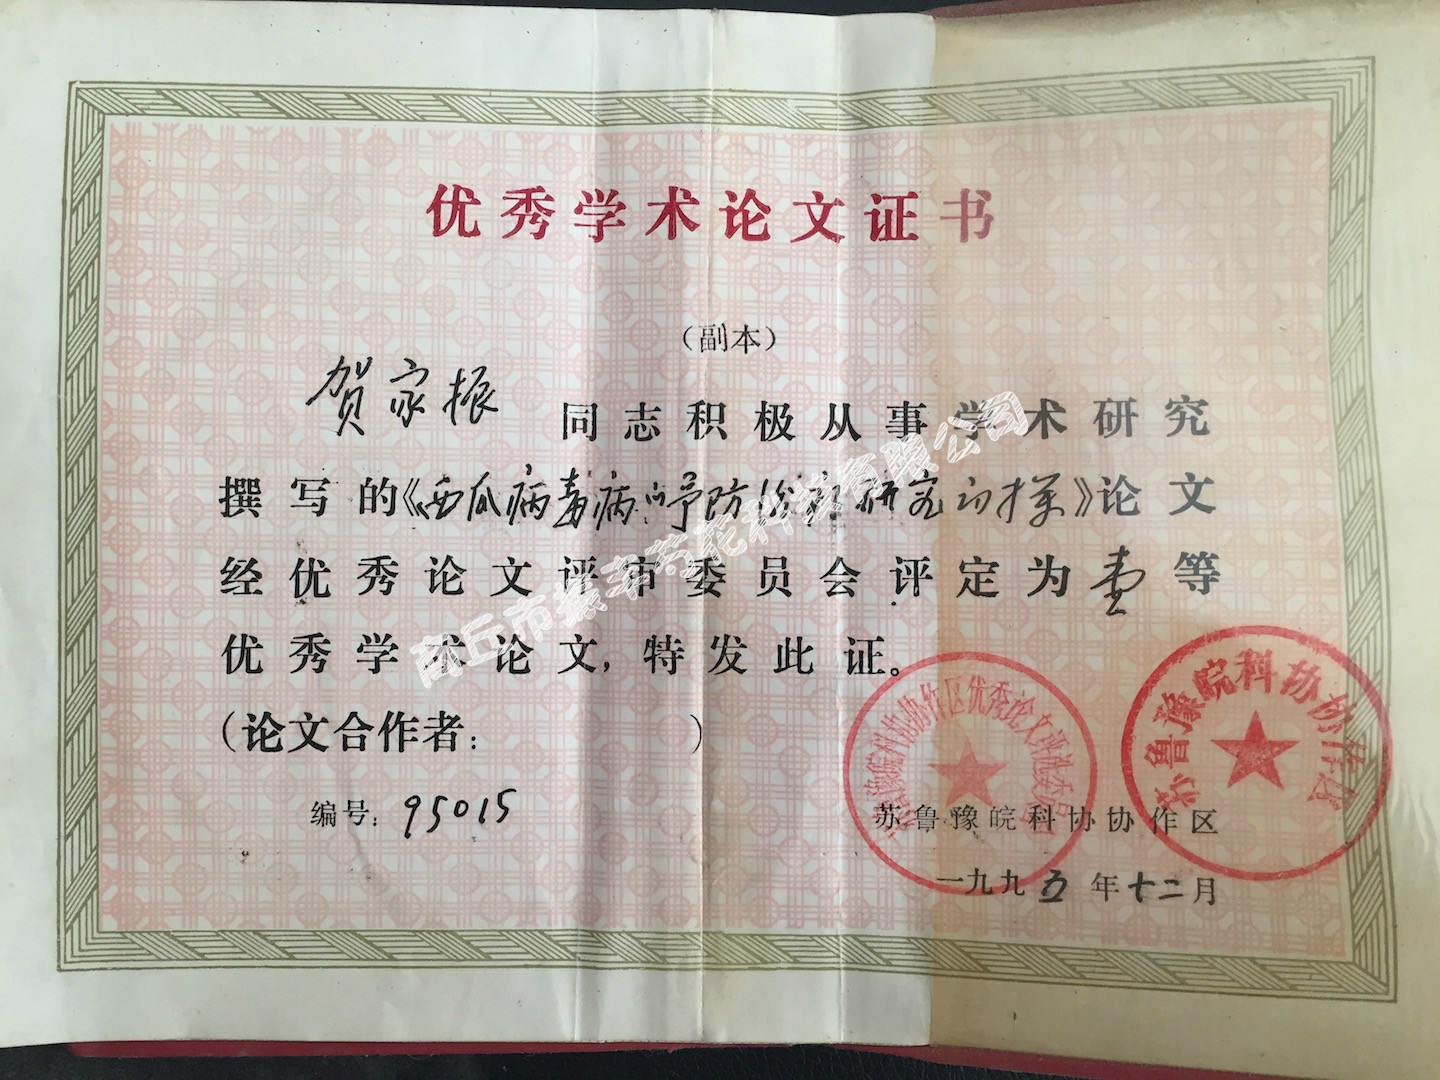 优秀学术论文证书
（副本）
贺家振 同志积极从事学术研究
撰写的《西瓜病毒病的予防治疗研究初探》论文
经优秀论文评审委员会评定为壹等
优秀学术论文，特发此证。
（论文合作者： ）
编号：95015
苏鲁豫皖科协协作区
一九九五年十二月
苏鲁豫皖科协协作区优秀论文评选委员会
苏鲁豫皖科协协作会
商丘市 芍花科技有限公司